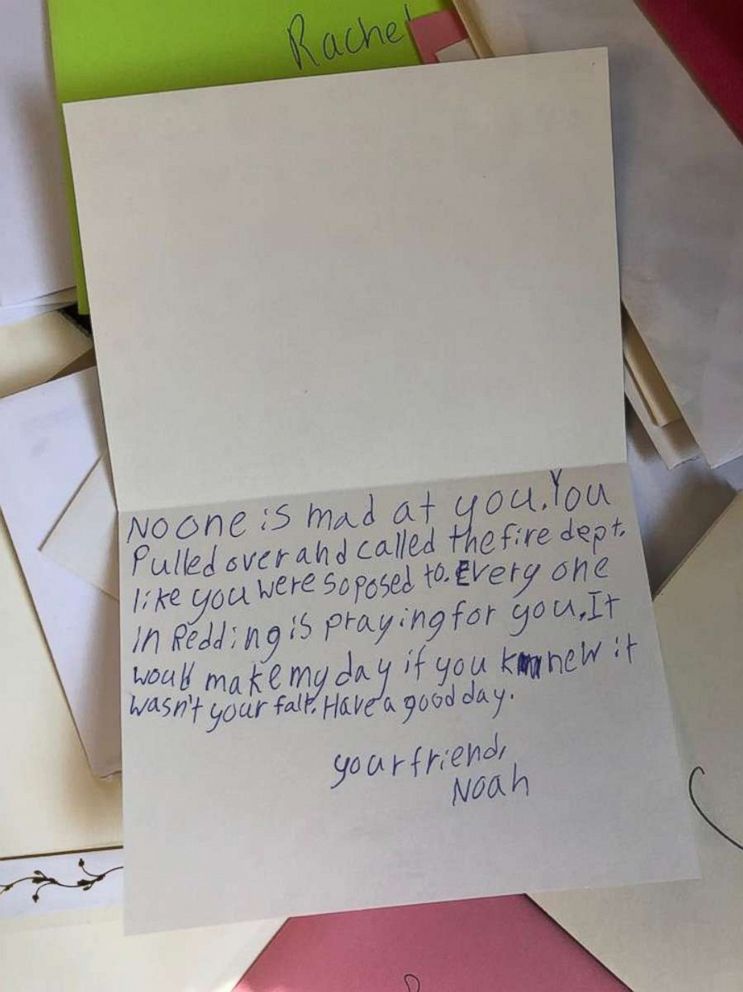 Rachel
No one is mad at you. You
Pulled over and called the fire dept.
like you were soposed to. Every one
in Redding is praying for you. It
would make my day if you knew it
wasn't your falt. Have a good day.
your friend,
Noah